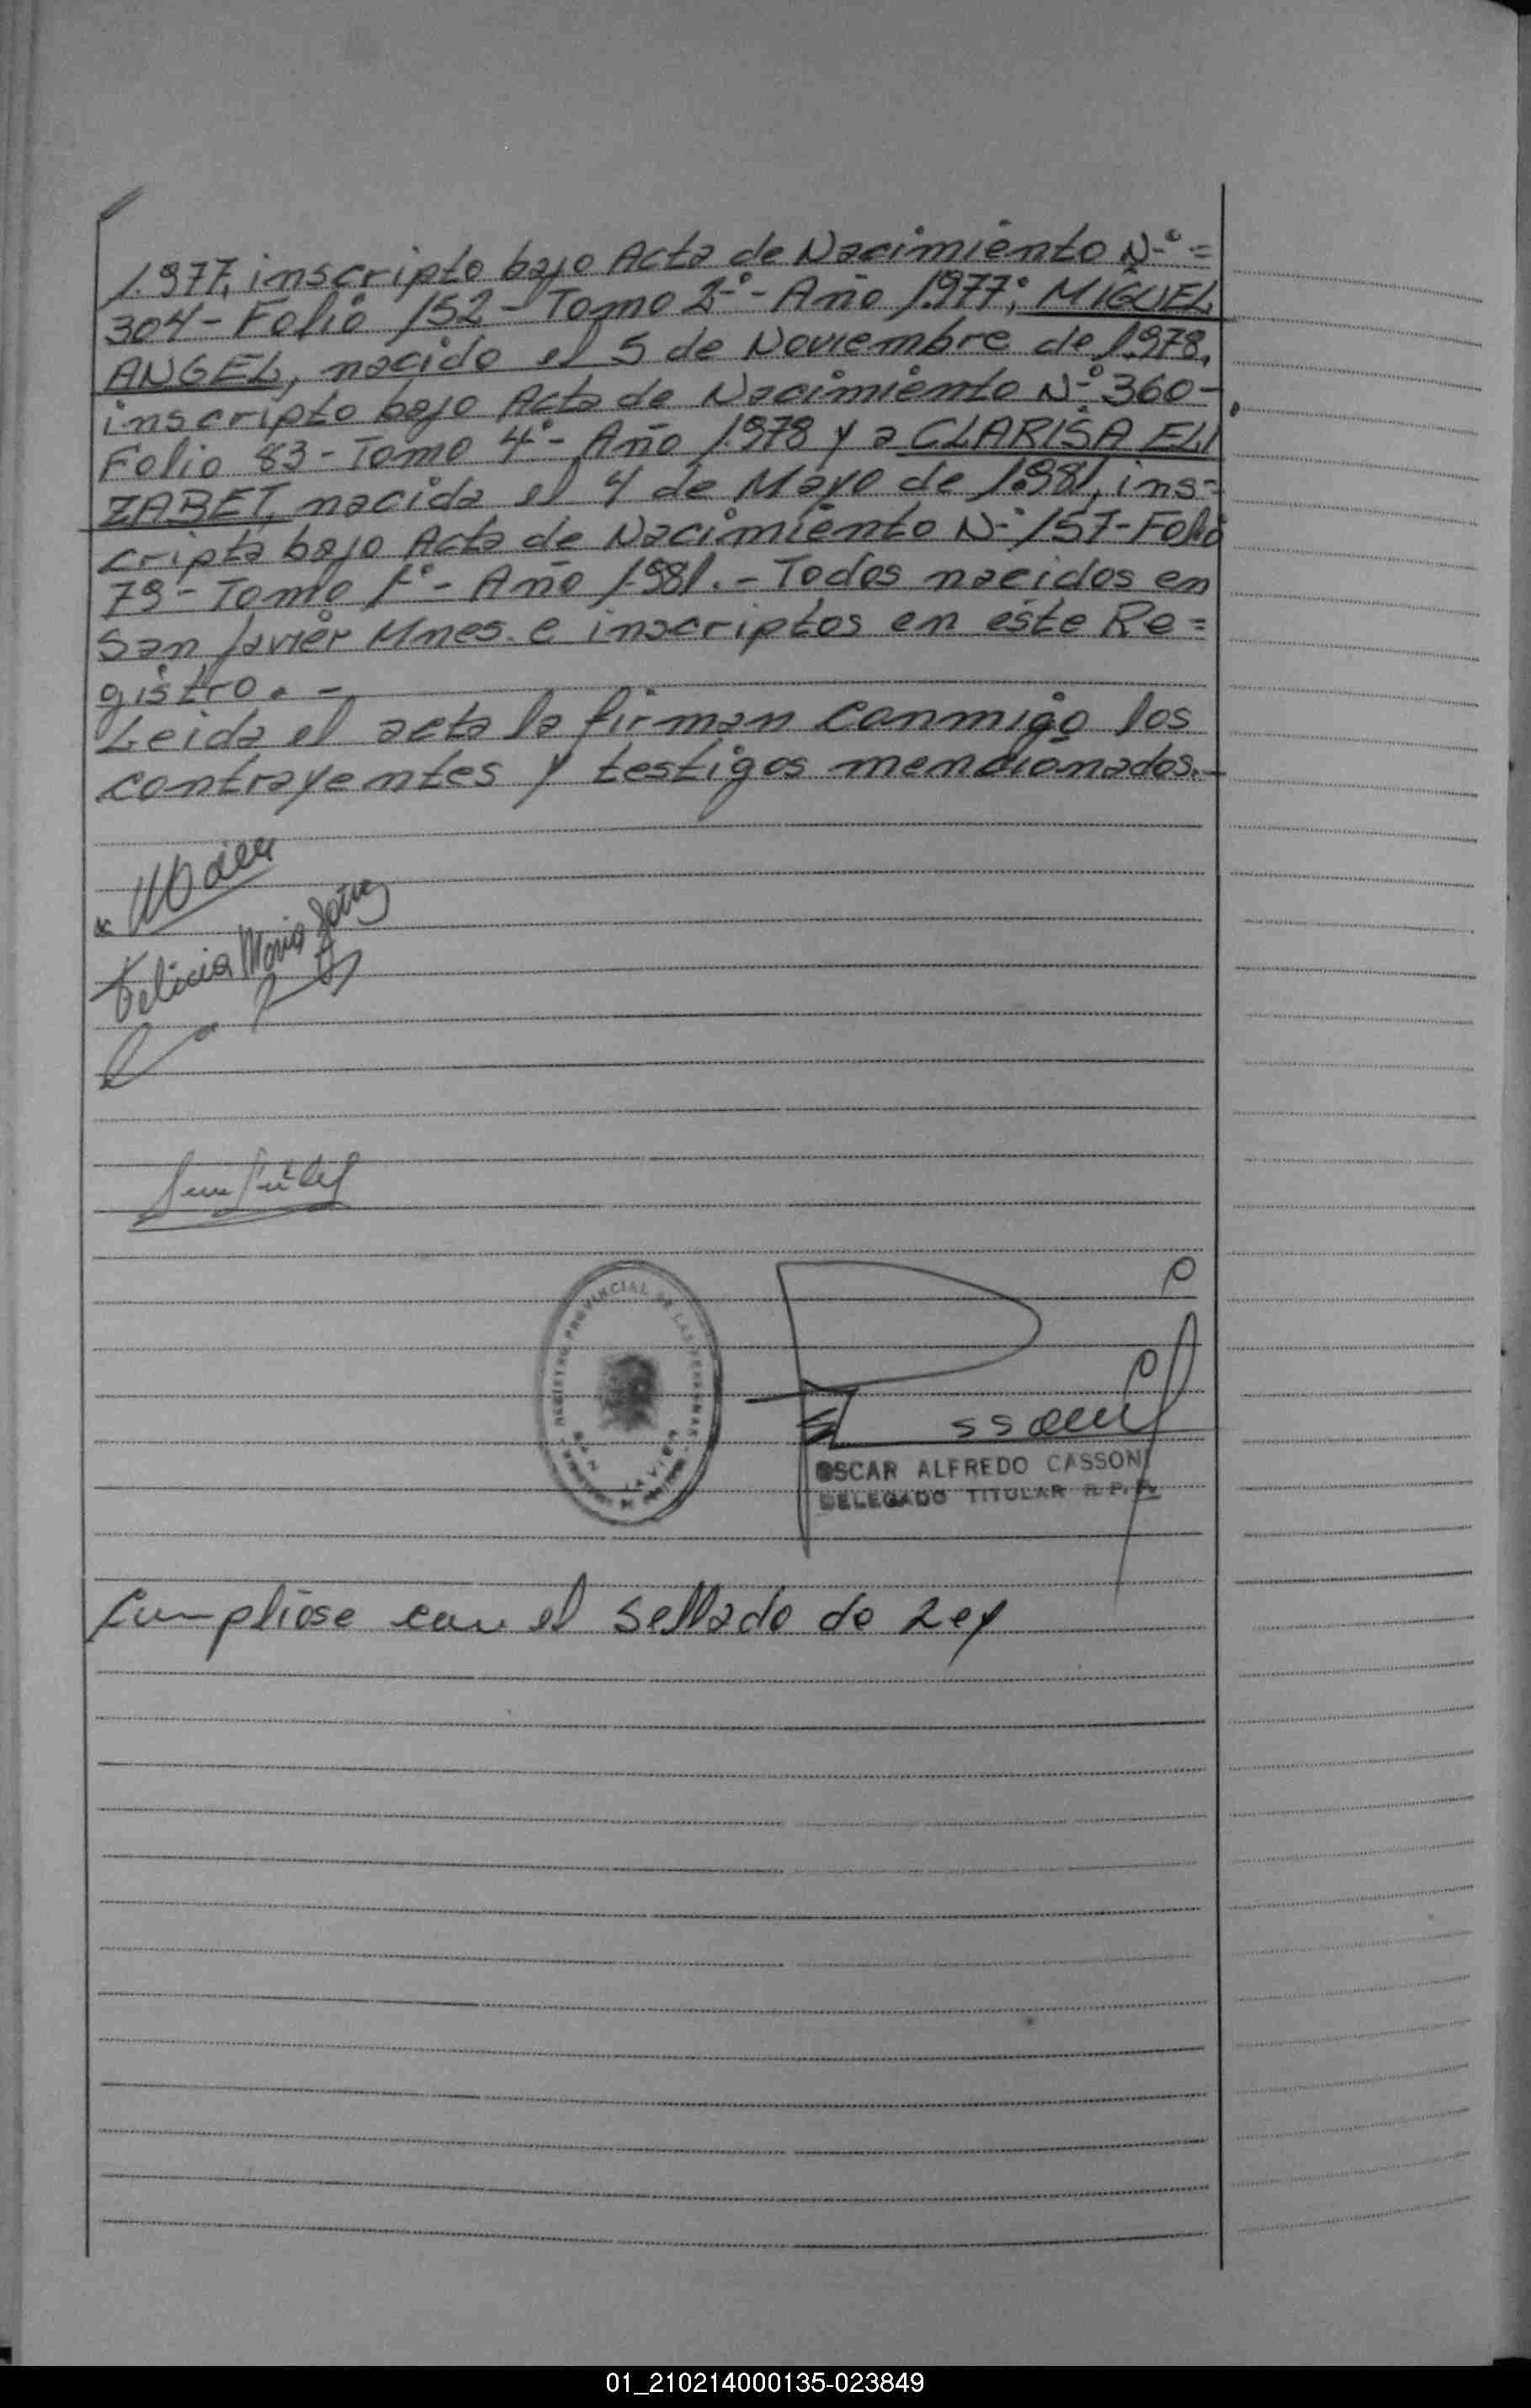 1.977, inscripto bajo Acta de Nacimiento N-º=
304- Folio 152- Tomo 2-º- Año 1.977; MIGUEL
ANGEL, nacido el 5 de Noviembre de 1.978,
inscripto bajo Acta de Nacimiento N-º 360-
Folio 83- Tomo 4º- Año 1.978 y a CLARISA ELI
ZABET, nacida el 4 de Mayo de 1.981, ins=
cripta bajo Acta de Nacimiento N-º 157- Folio
79- Tomo 1º- Año 1.981.- Todos nacidos en
San Javier Mnes. e inscriptos en éste Re=
gistro.-
Leida el acta la firman conmigo los
contrayentes y testigos mencionados.-
Felicia Maria
REGISTRO PROVINCIAL DE LAS PERSONAS
OSCAR ALFREDO CASSONI
DELEGADO TITULAR R.P.P.
Cumpliose con el sellado de Ley
01_210214000135-023849